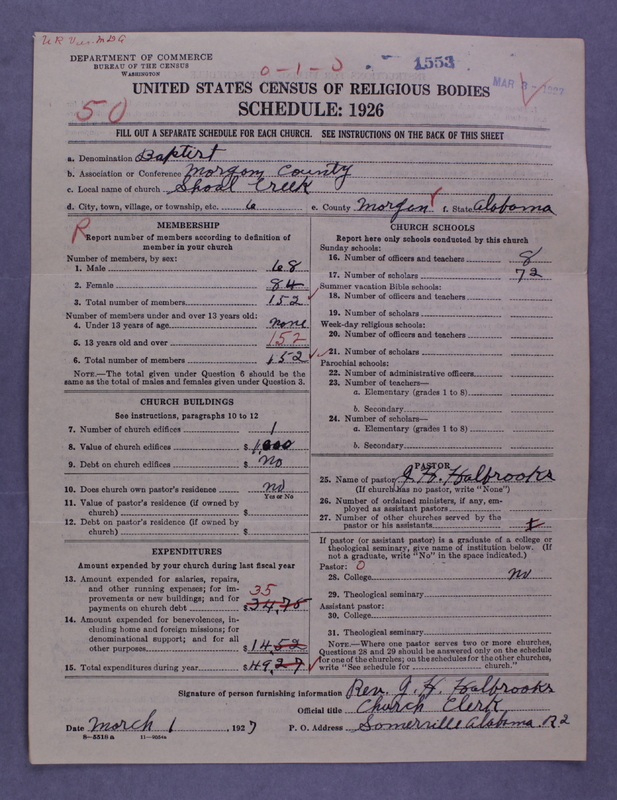 DEPARTMENT OF COMMERCE
BUREAU OF THE CENSUS
WASHINGTON
0-1-0
1553
MAR 3- 1927
50
UNITED STATES CENSUS OF RELIGIOUS BODIES
SCHEDULE: 1926
FILL OUT A SEPARATE SCHEDULE FOR EACH CHURCH. SEE INSTRUCTIONS ON THE BACK OF THIS SHEET
a. Denomination Baptist
b. Association or Conference Morgan County
c. Local name of church Shoal Creek
d. City, town, village, or township, etc. 6 e. County Morgan f. State Alabama
R
MEMBERSHIP
Report number of members according to definition of
member in your church
Number of members, by sex:
1. Male 68
2. Female 84
3. Total number of members 152
Number of members under and over 13 years old:
4. Under 13 years of age none
5. 13 years old and over 152
6. Total number of members 152
NOTE.—The total given under Question 6 should be the
same as the total of males and females given under Question 3.
CHURCH BUILDINGS
See instructions, paragraphs 10 to 12
7. Number of church edifices 1
8. Value of church edifices $ 1,000
9. Debt on church edifices $ No
10. Does church own pastor's residence no
Yes or No
11. Value of pastor's residence (if owned by
church) $
12. Debt on pastor's residence (if owned by
church) $
EXPENDITURES
Amount expended by your church during last fiscal year
13. Amount expended for salaries, repairs,
and other running expenses; for im-
provements or new buildings; and for
payments on church debt $ 34,75
35
14. Amount expended for benevolences, in-
cluding home and foreign missions; for
denominational support; and for all
other purposes $ 14,52
15. Total expenditures during year $ 49,27
CHURCH SCHOOLS
Report here only schools conducted by this church
Sunday schools:
16. Number of officers and teachers 8
17. Number of scholars 72
Summer vacation Bible schools:
18. Number of officers and teachers
19. Number of scholars
Week-day religious schools:
20. Number of officers and teachers
21. Number of scholars
Parochial schools:
22. Number of administrative officers
23. Number of teachers—
a. Elementary (grades 1 to 8)
b. Secondary
24. Number of scholars—
a. Elementary (grades 1 to 8)
b. Secondary
PASTOR
25. Name of pastor J. H. Halbrooks
(If church has no pastor, write "None")
26. Number of ordained ministers, if any, em-
ployed as assistant pastors
27. Number of other churches served by the
pastor or his assistants
If pastor (or assistant pastor) is a graduate of a college or
theological seminary, give name of institution below. (If
not a graduate, write "No" in the space indicated.)
Pastor: 0
28. College No
29. Theological seminary
Assistant pastor:
30. College
31. Theological seminary
NOTE.—Where one pastor serves two or more churches,
Questions 28 and 29 should be answered only on the schedule
for one of the churches; on the schedules for the other churches,
write "See schedule for church."
Signature of person furnishing information Rev. J. H. Halbrooks
Official title Church Clerk
Date March 1, 1927 P. O. Address Somerville Alabama. R2
8-5518a 11-9054a